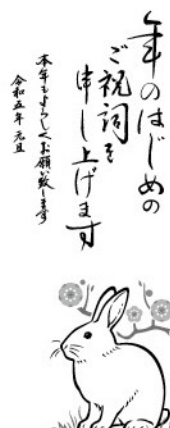 年のはじめの
ご祝詞を
申し上げます
本年もよろしくお願い致します
令和五年 元旦